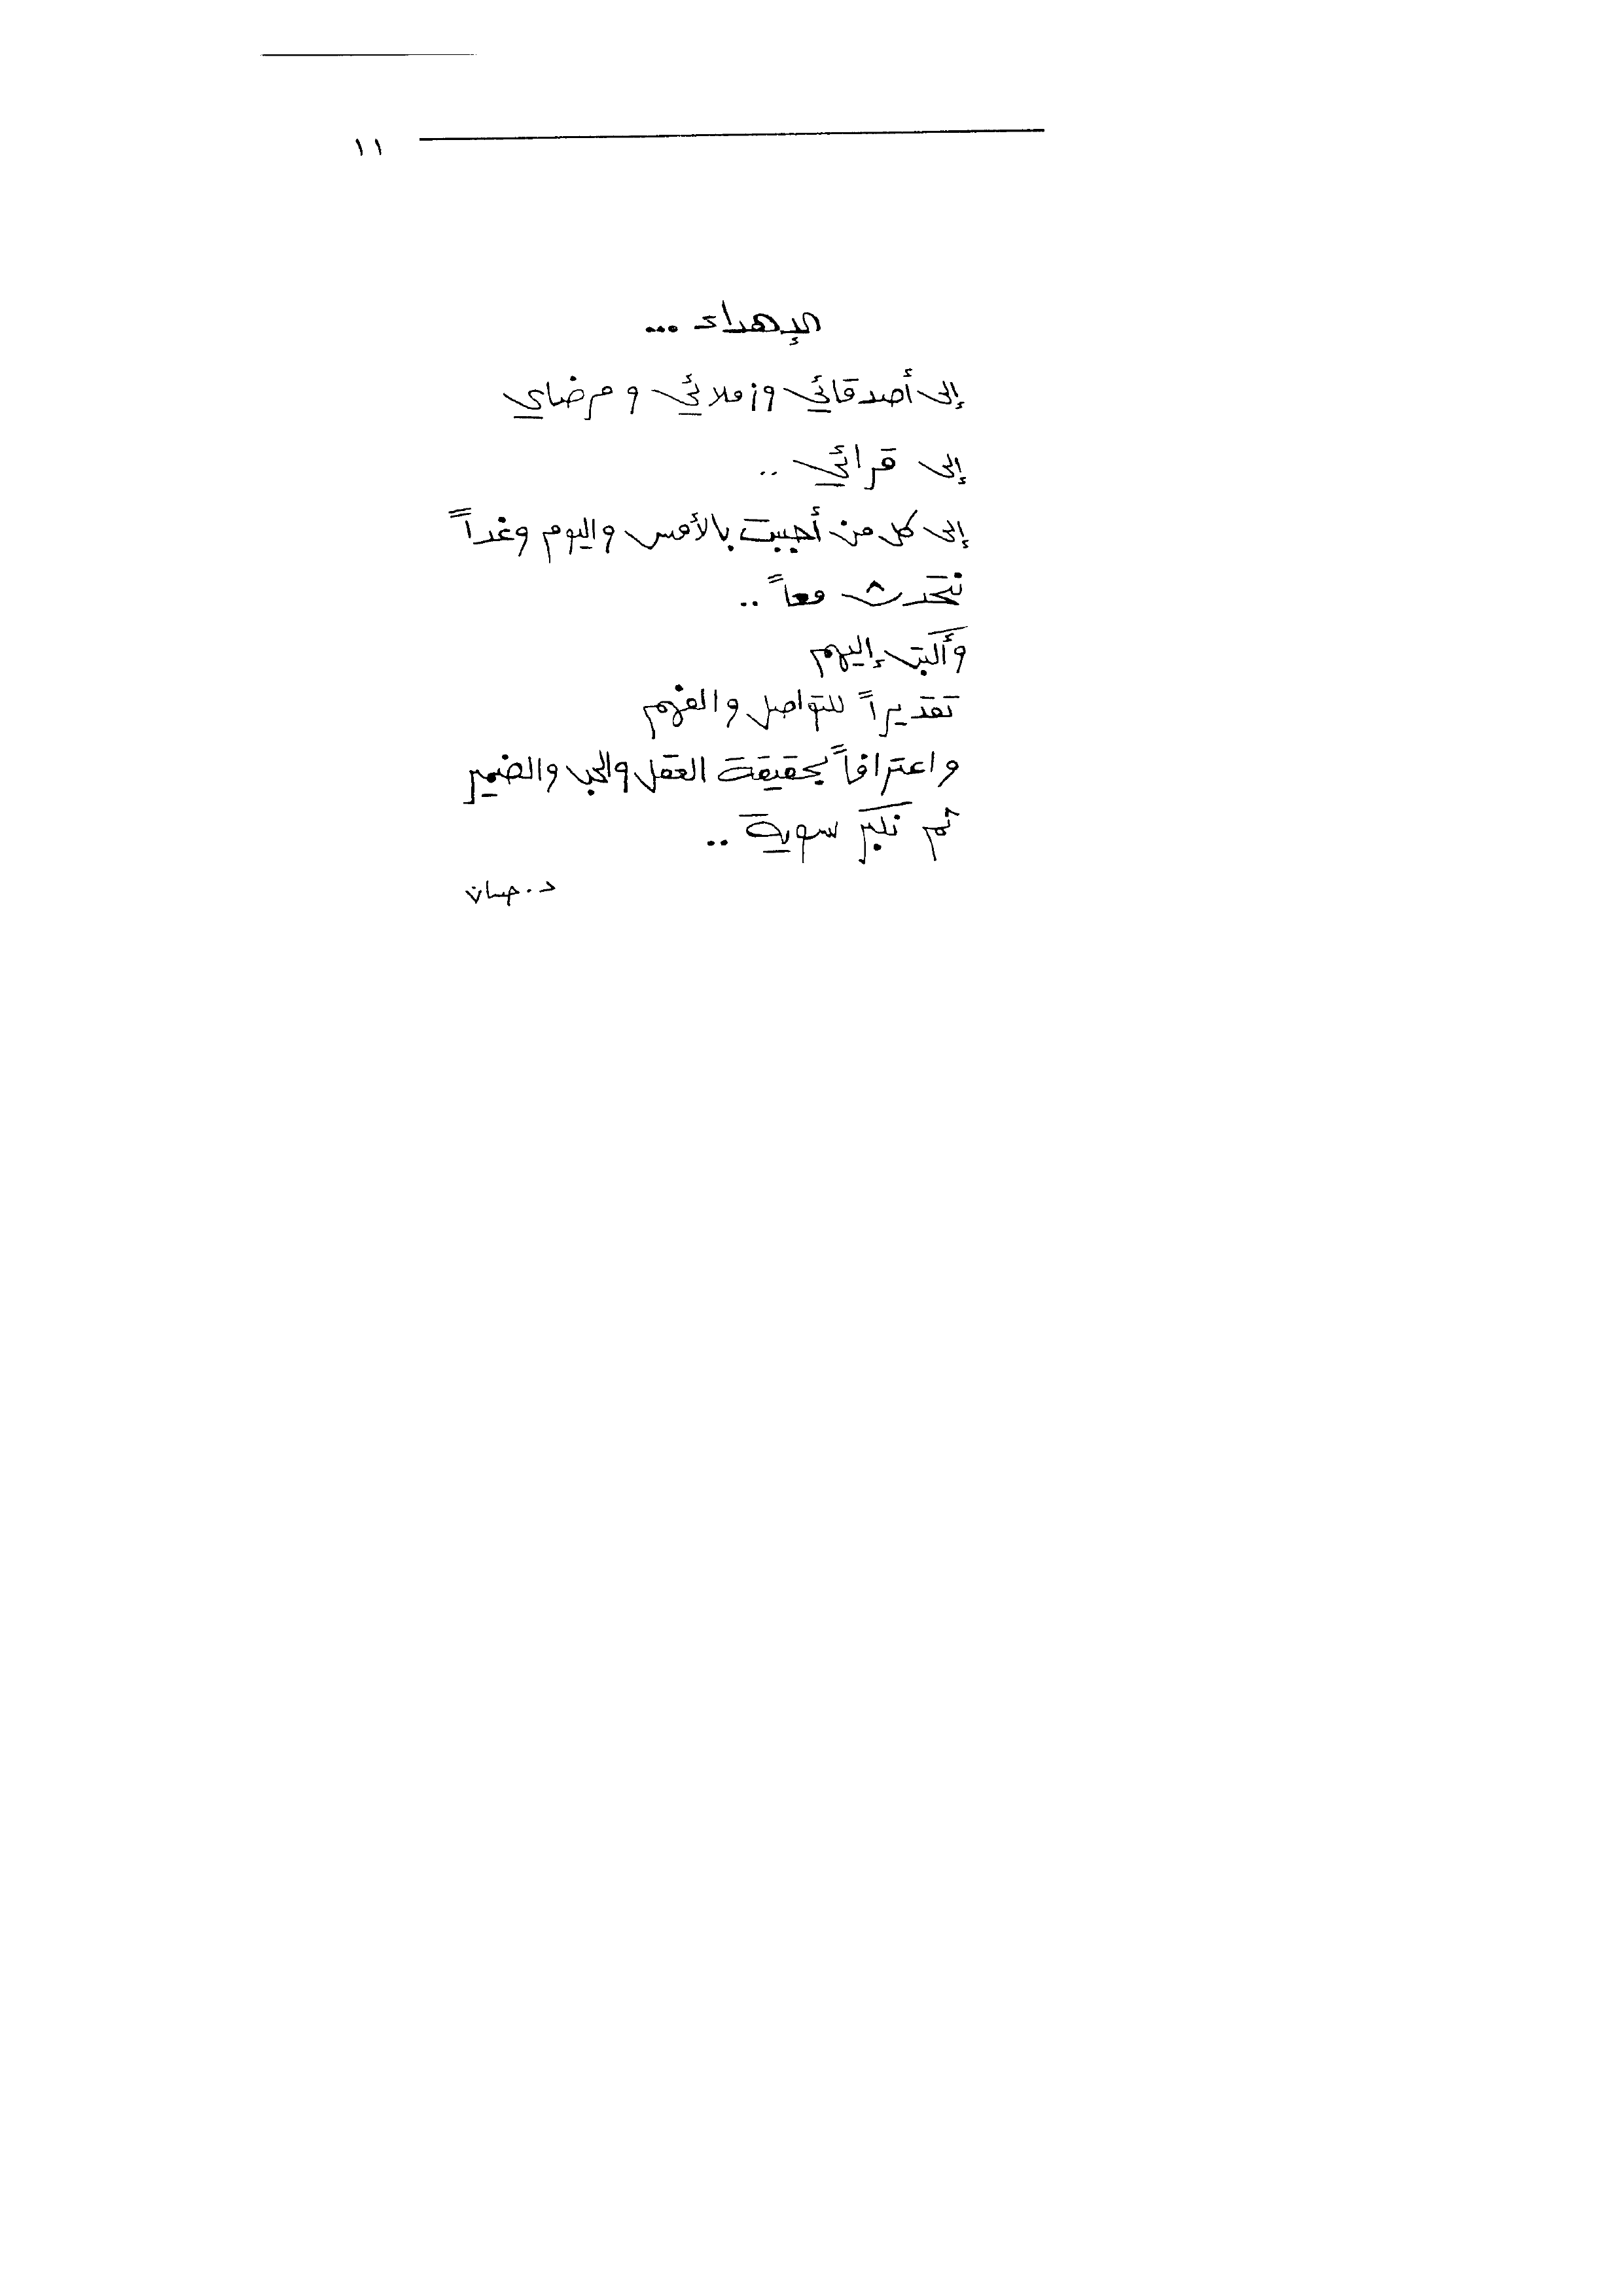 ١١
الإهداء ...
إلى أصدقائي وزملائي ومرضاي
إلى قرائي ..
إلى كل من أحببت بالأمس واليوم وغداً
نتحدث معاً ..
وأكتب إليهم
تقديراً للتواصل والفهم
واعترافاً بحقيقة العقل والحب والضمير
ثم نكبر سوية ..
د. حسان